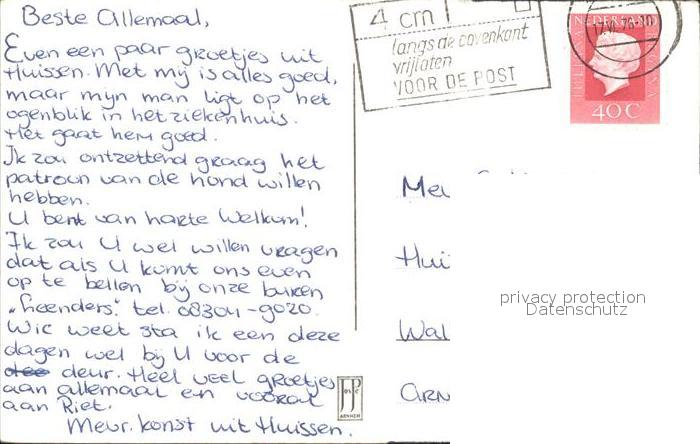 Beste allemaal,
Even een paar groetjes uit
Huissen. Met mij is alles goed,
maar mijn man ligt op het
ogenblik in het ziekenhuis.
Het gaat hem goed.
Ik zou ontzettend graag het
patroon van de hond willen
hebben.
U bent van harte Welkom!
Ik zou U wel willen vragen
dat als U komt ons even
op te bellen bij onze buren
„Leenders". tel. 08304-9020.
Wie weet sta ik een deze
dagen wel bij U voor de
deur. Heel veel groetjes
aan allemaal en vooral
aan Riet.
Mevr. Konst uit Huissen.
4 cm
langs de bovenkant
vrijlaten
VOOR DE POST
NEDERLAND
40 C
JosPé
ARNHEM
Mev
Hui
Wal
ARN
privacy protection
Datenschutz